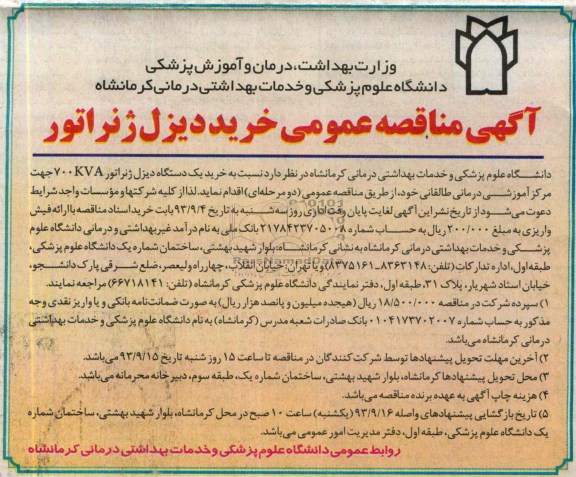 وزارت بهداشت، درمان و آموزش پزشکی
دانشگاه علوم پزشکی و خدمات بهداشتی درمانی کرمانشاه
آگهی مناقصه عمومی خرید دیزل ژنراتور
دانشگاه علوم پزشکی و خدمات بهداشتی درمانی کرمانشاه در نظر دارد نسبت به خرید یک دستگاه دیزل ژنراتور ۷۰۰KVA جهت
مرکز آموزشی درمانی طالقانی خود، از طریق مناقصه عمومی (دو مرحله‌ای) اقدام نماید. لذا از کلیه شرکتها و مؤسسات واجد شرایط
دعوت می‌شود از تاریخ نشر این آگهی لغایت پایان وقت اداری روز سه‌شنبه به تاریخ ۹۳/۹/۴ بابت خرید اسناد مناقصه با ارائه فیش
واریزی به مبلغ ۲۰۰/۰۰۰ ریال به حساب شماره ۲۱۷۸۴۲۳۷۰۵۰۲۸ بانک ملی به نام درآمد غیربهداشتی و درمانی دانشگاه علوم
پزشکی و خدمات بهداشتی درمانی کرمانشاه به نشانی کرمانشاه: بلوار شهید بهشتی، ساختمان شماره یک دانشگاه علوم پزشکی،
طبقه اول، اداره تدارکات (تلفن: ۸۳۶۳۱۴۸-۸۳۷۵۱۶۱) و یا تهران: خیابان انقلاب، چهارراه ولیعصر، ضلع شرقی پارک دانشجو،
خیابان استاد شهریار، پلاک ۳۱، طبقه اول، دفتر نمایندگی دانشگاه علوم پزشکی کرمانشاه (تلفن: ۶۶۷۱۸۱۴۱) مراجعه نمایند.
۱) سپرده شرکت در مناقصه ۱۸/۵۰۰/۰۰۰ ریال (هیجده میلیون و پانصد هزار ریال) به صورت ضمانت‌نامه بانکی و یا واریز نقدی وجه
مذکور به حساب شماره ۰۱۰۴۱۷۳۷۰۲۰۰۷ بانک صادرات شعبه مدرس (کرمانشاه) به نام دانشگاه علوم پزشکی و خدمات بهداشتی
درمانی کرمانشاه می‌باشد.
۲) آخرین مهلت تحویل پیشنهادها توسط شرکت کنندگان در مناقصه تا ساعت ۱۵ روز شنبه تاریخ ۹۳/۹/۱۵ می‌باشد.
۳) محل تحویل پیشنهادها کرمانشاه، بلوار شهید بهشتی، ساختمان شماره یک، طبقه سوم، دبیرخانه محرمانه می‌باشد.
۴) هزینه چاپ آگهی به عهده برنده مناقصه می‌باشد.
۵) تاریخ بازگشایی پیشنهادهای واصله ۹۳/۹/۱۶ (یکشنبه) ساعت ۱۰ صبح در محل کرمانشاه، بلوار شهید بهشتی، ساختمان شماره
یک دانشگاه علوم پزشکی، طبقه اول، دفتر مدیریت امور عمومی می‌باشد.
روابط عمومی دانشگاه علوم پزشکی و خدمات بهداشتی درمانی کرمانشاه